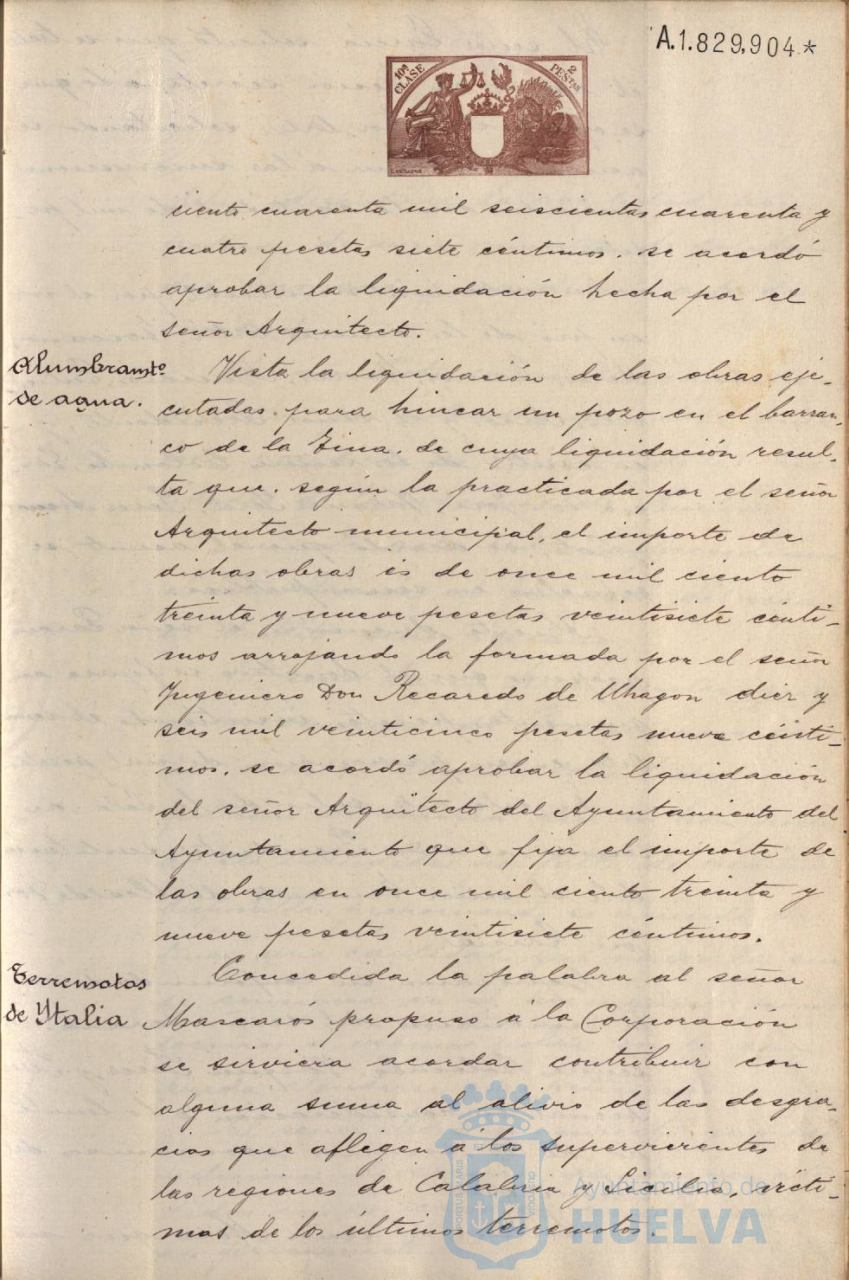 A.1.829,904*
10ª CLASE
2 PESTAS
ciento cuarenta mil seiscientas cuarenta y
cuatro pesetas siete céntimos. se acordó
aprobar la liquidación hecha por el
señor Arquitecto.
Alumbramto.
de agua.
Vista la liquidación de las obras eje-
cutadas para hincar un pozo en el barran-
co de la Zina. de cuya liquidación resul-
ta que. según la practicada por el señor
Arquitecto municipal, el importe de
dichas obras es de once mil ciento
treinta y nueve pesetas veintisiete cénti-
mos arrojando la formada por el señor
Ingeniero Don Recaredo de Uhagon diez y
seis mil veinticinco pesetas nueve cénti-
mos. se acordó aprobar la liquidación
del señor Arquitecto del Ayuntamiento del
Ayuntamiento que fija el importe de
las obras en once mil ciento treinta y
nueve pesetas veintisiete céntimos.
Terremotos
de Ytalia
Concedida la palabra al señor
Mascarós propuso á la Corporación
se sirviera acordar contribuir con
alguna suma al alivio de las desgra-
cias que afligen á los supervivientes de
las regiones de Calabria y Sicilia, vícti-
mas de los últimos terremotos.
Ayuntamiento de
HUELVA